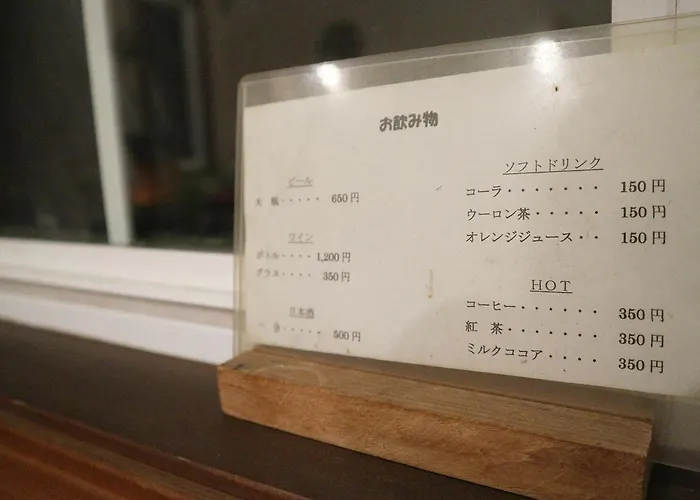 お飲み物
ビール
大 瓶・・・・・ 650円
ワイン
ボトル・・・・ 1,200円
グラス・・・・ 350円
日本酒
一 合・・・・・ 500円
ソフトドリンク
コーラ・・・・・・・ 150円
ウーロン茶・・・・・ 150円
オレンジジュース・・ 150円
HOT
コーヒー・・・・・・ 350円
紅 茶・・・・・・・ 350円
ミルクココア・・・・・ 350円